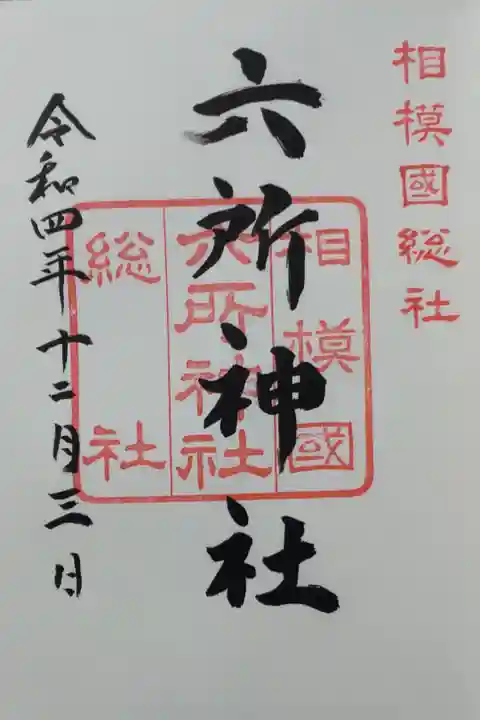 相模國総社
六所神社
相模國
六所神社
総社
令和四年十二月三日